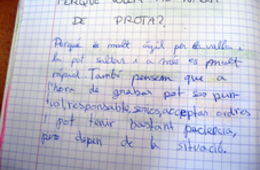 PERQUE VOLEM
DE PROTA?
Perque es molt àgil per
i pot saltar i a més es molt
ràpid. També pensem que a
l'hora de grabar pot ser pun-
tual, responsable, seriós, acceptar ordres
i pot tenir bastant paciencia,
però depen de la situació.